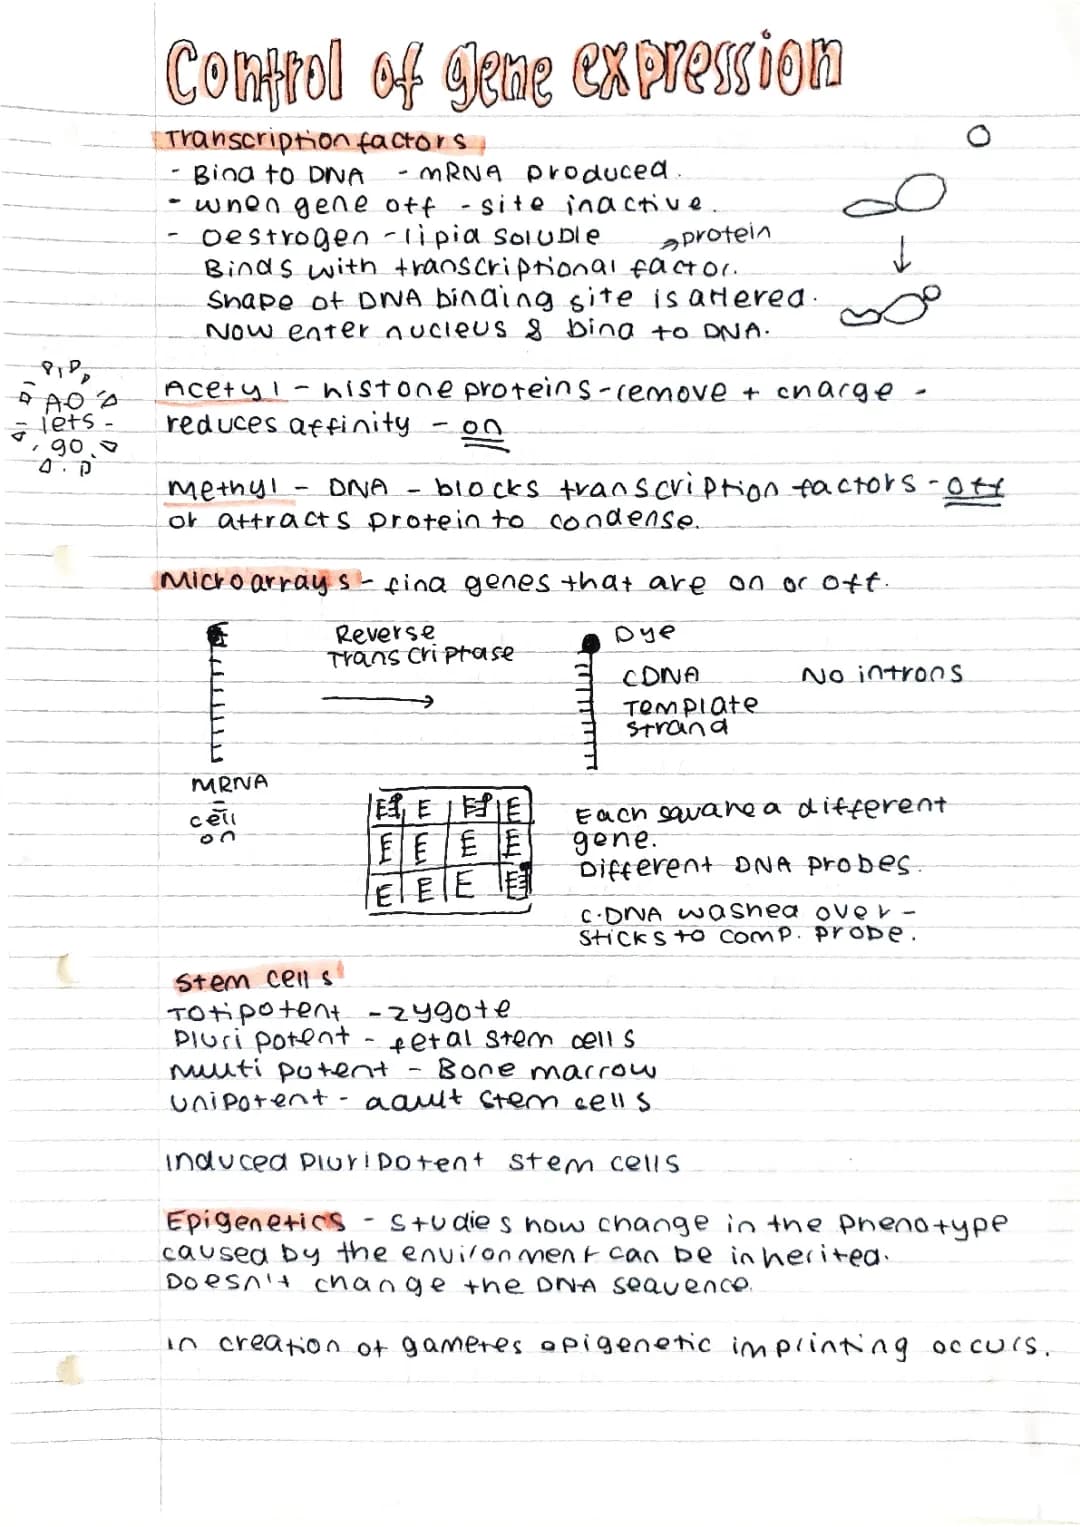 Control of gene expression
Transcription factors
- Bind to DNA - mRNA produced.
- when gene off - site inactive.
- oestrogen - lipid soluble → protein
Binds with transcriptional factor.
Shape of DNA binding site is altered.
Now enter nucleus & bind to DNA.
AO
lets
go
Acetyl - histone proteins - remove + charge -
reduces affinity - on
Methyl - DNA - blocks transcription factors - off
or attracts protein to condense.
Microarrays - find genes that are on or off.
Reverse
Transcriptase
Dye
CDNA
Template
strand
No introns
MRNA
cell
on
E E E E
E E E E
E E E E
Each square a different
gene.
Different DNA probes.
C.DNA washed over -
sticks to comp. probe.
Stem cells
Totipotent - zygote
Pluripotent - fetal stem cells
multi potent - Bone marrow
unipotent - adult stem cells
induced pluripotent stem cells
Epigenetics - studies how change in the phenotype
caused by the environment can be inherited.
Doesn't change the DNA sequence.
in creation of gametes epigenetic imprinting occurs.